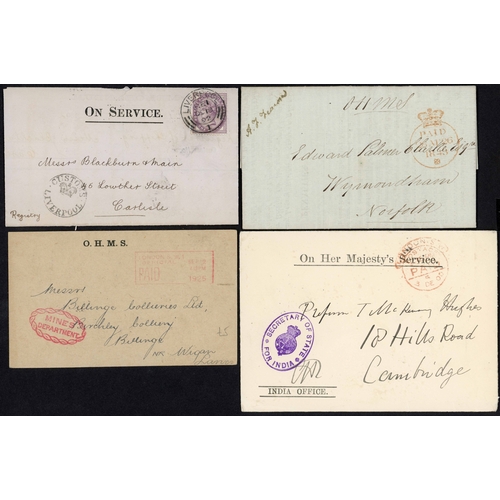 ON SERVICE.
LIVERPOOL
Messrs Blackburn & Main
Lowther Street
Carlisle
CUSTOMS
LIVERPOOL
Registry
OHMS
PAID
Edward Palmer Clarke Esqre
Wymondham
Norfolk
O. H. M. S.
PAID
Messrs
Billinge Collieries Ltd,
Birchley Colliery
Billinge
Nr Wigan
MINES
DEPARTMENT
On Her Majesty's Service.
PAID
Professor T McKenny Hughes
18 Hills Road
Cambridge
SECRETARY OF STATE
FOR INDIA
INDIA OFFICE.